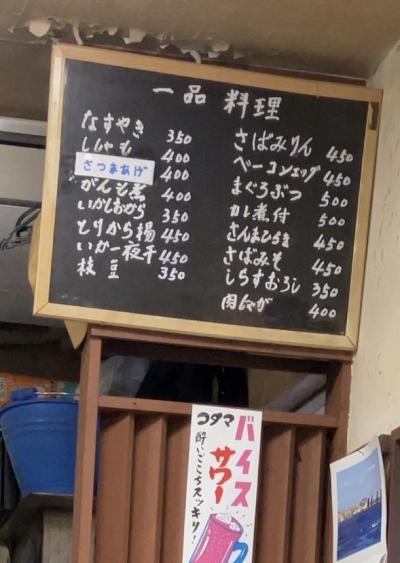 一品料理
なすやき 350
ししゃも 400
さつまあげ 400
がんも煮 400
いかしおから 350
とりから揚 450
いか一夜干 450
枝豆 350
さばみりん 450
ベーコンエッグ 450
まぐろぶつ 500
カレイ煮付 500
さんまひらき 450
さばみそ 450
しらすおろし 350
肉じゃが 400
コダマ
バイス
サワー
酔いごこちスッキリ!